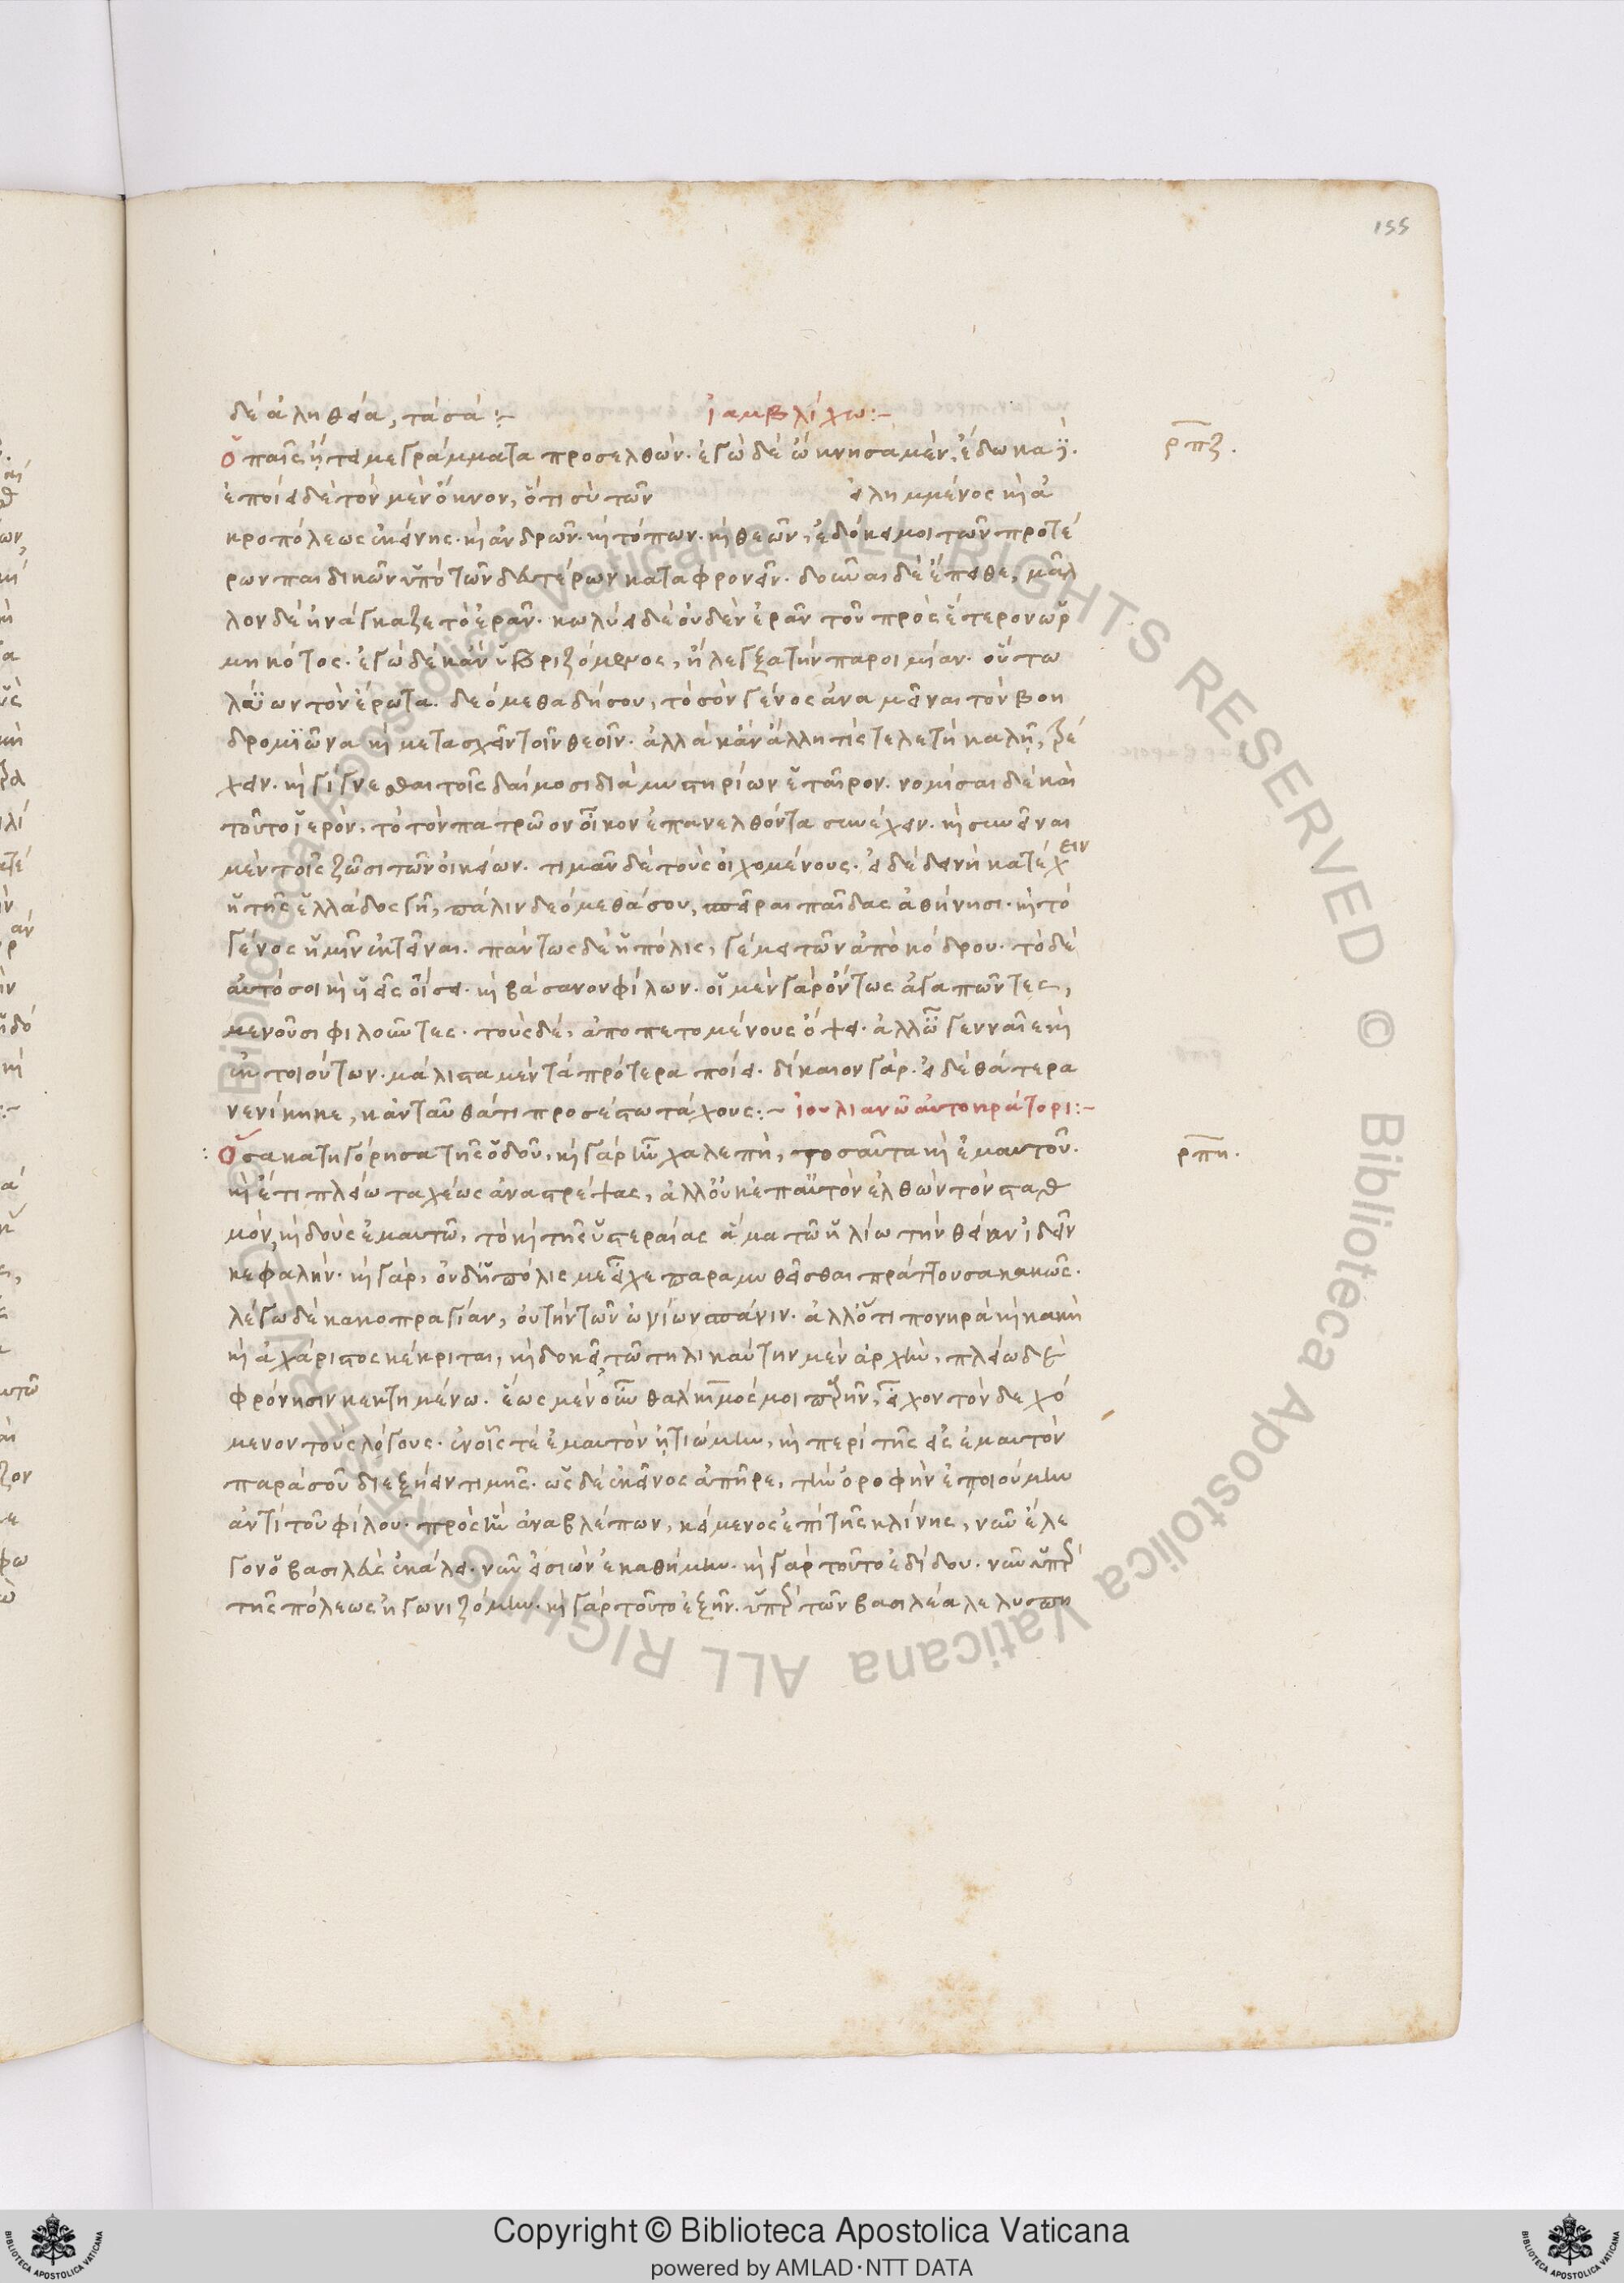 155
δὲ ἀληθεία, τὰ σά :~ ἰαμβλίχω :~
ὁ παῖς ᾔτει με γράμματα προσελθών. ἐγὼ δὲ ὤκνησα μὲν, ἔδωκα δ.
ρπζ.
ἐποίει δὲ τὸν μὲν ὄκνον, ὅτι σὺ τῶν εἰλημμένος καὶ ἀ
κροπόλεως ἐκείνης. καὶ ἀνδρῶν. καὶ τόπων. καὶ θεῶν, ἐδόκει μοι τῶν προτέ
ρων παιδικῶν ὑπὸ τῶν δευτέρων καταφρονεῖν. δοῦναι δὲ ἔπειθε, μᾶλ
λον δὲ ἠνάγκαζε τὸ ἐρᾶν. κωλύει δὲ οὐδὲν ἐρᾶν τοῦ πρὸς ἕτερον ὡρ
μηκότος. ἐγὼ δὲ κἂν ὑβριζόμενος, ἤλεγξα τὴν παροιμίαν. οὕτω
λύων τὸν ἔρωτα. δεόμεθα δή σου, τὸ σὸν γένος ἀναμεῖναι τὸν βοη
δρομιῶνα καὶ μετασχεῖν τοῖν θεοῖν. ἀλλὰ κἂν ἄλλη τις τελετὴ καλῇ, τρέ
χειν. καὶ γίγνεσθαι τοῖς δαίμοσι διὰ μυστηρίων ἑταῖρον. νομίσαι δὲ καὶ
τοῦτο ἱερὸν, τὸ τὸν πατρῷον οἶκον ἐπανελθόντα συνέχειν. καὶ συνεῖναι
μὲν τοῖς ζῶσι τῶν οἰκείων. τιμᾶν δὲ τοὺς οἰχομένους. εἰ δὲ δεινὴ κατέχειν
ἡ τῆς ἑλλάδος γῆ, πάλιν δεόμεθά σου, σπεῖραι παῖδας ἀθήνησι. καὶ τὸ
γένος ἡμῖν ἐκτεῖναι. πάντως δὲ ἡ πόλις, γέμει τῶν ἀπὸ κόδρου. τὸ δὲ
αὐτό σοι καὶ ἡδεῖς οἴσει. καὶ βάσανον φίλων. οἱ μὲν γὰρ ὄντως ἀγαπῶντες,
μενοῦσι φιλοῦντες. τοὺς δὲ, ἀποπετομένους ὄψει. ἀλλ' ὦ γενναῖε καὶ
ἐκ τοιούτων. μάλιστα μὲν τὰ πρότερα ποίει. δίκαιον γάρ. εἰ δὲ θάτερα
νενίκηκε, κἀνταῦθά τι προσέστω τάχους :~ ἰουλιανῶ αὐτοκράτορι :~
: ὅσα κατηγόρησα τῆς ὁδοῦ, καὶ γὰρ ἦν χαλεπὴ, τοσαῦτα καὶ ἐμαυτοῦ.
ρπη.
καὶ ἔτι πλείω ταχέως ἀναστρέψας, ἀλλ' οὐκ ἐπ' αὐτὸν ἐλθὼν τὸν σταθ
μόν, καὶ δοὺς ἐμαυτῶ, τὸ καὶ τῆς ὑστεραίας ἅμα τῶ ἡλίω τὴν θείαν ἰδεῖν
κεφαλήν. καὶ γὰρ, οὐδ' ἡ πόλις με εἶχε παραμυθεῖσθαι πράττουσα κακῶς.
λέγω δὲ κακοπραγίαν, οὐ τὴν τῶν ὠνίων σπάνιν. ἀλλ' ὅτι πονηρὰ καὶ κακὴ
καὶ ἀχάριστος κέκριται, καὶ δοκεῖ τῶ τηλικαύτην μὲν ἀρχὴν, πλείω δὲ
φρόνησιν κεκτημένω. ἕως μὲν οὖν θαλήϊμός μοι παρῆν, εἶχον τὸν δεχό
μενον τοὺς λόγους. ἐν οἷς τε ἐμαυτὸν ᾐτιώμην, καὶ περὶ τῆς εἰς ἐμαυτὸν
παρὰ σοῦ διεξῄειν τιμῆς. ὡς δὲ ἐκεῖνος ἀπῆρε, τὴν ὀροφὴν ἐποιούμην
ἀντὶ τοῦ φίλου. πρὸς ἣν ἀναβλέπων, κείμενος ἐπὶ τῆς κλίνης, νῦν ἔλε
γον ὁ βασιλεὺς ἐκάλει. νῦν εἰσιὼν ἐκαθήμην. καὶ γὰρ τοῦτο ἐδίδου. νῦν ὑπὲρ
τῆς πόλεως ἠγωνιζόμην. καὶ γὰρ τοῦτο ἐξῆν. ὑπὲρ τῶν βασιλέα λελυπη
Biblioteca Apostolica Vaticana ALL RIGHTS RESERVED ©
Copyright © Biblioteca Apostolica Vaticana
powered by AMLAD·NTT DATA